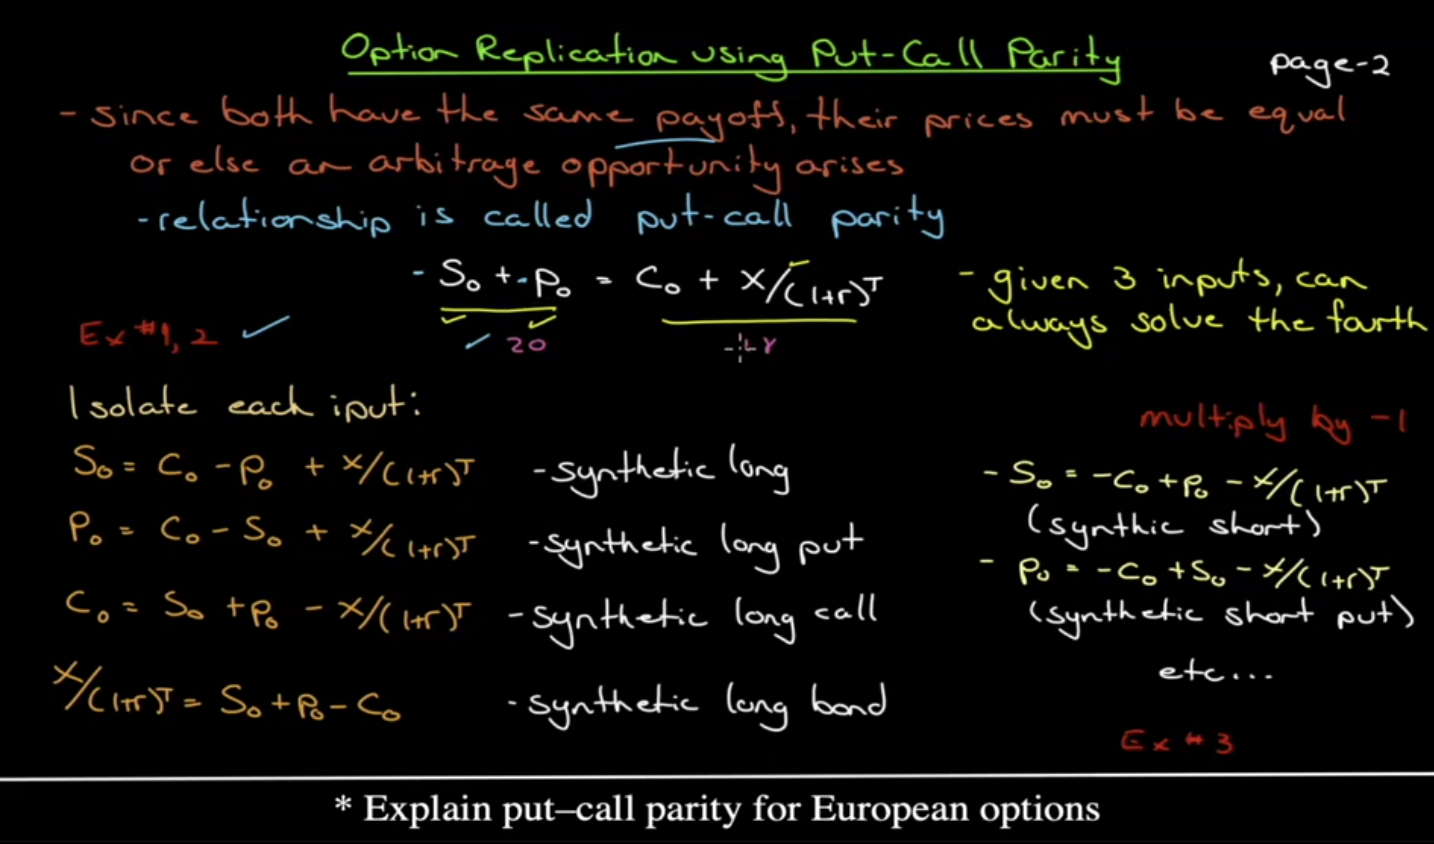 Option Replication using Put-Call Parity
page-2
- since both have the same payoff, their prices must be equal
or else an arbitrage opportunity arises
- relationship is called put-call parity
- S₀ + p₀ = C₀ + X/(1+r)ᵀ
- given 3 inputs, can
always solve the fourth
Ex #1, 2 ✓
20
Isolate each iput:
multiply by -1
S₀ = C₀ - P₀ + X/(1+r)ᵀ - synthetic long
P₀ = C₀ - S₀ + X/(1+r)ᵀ - synthetic long put
C₀ = S₀ + p₀ - X/(1+r)ᵀ - synthetic long call
X/(1+r)ᵀ = S₀ + p₀ - C₀ - synthetic long bond
- S₀ = -C₀ + p₀ - X/(1+r)ᵀ
(synthic short)
- p₀ = -C₀ + S₀ - X/(1+r)ᵀ
(synthetic short put)
etc...
Ex #3
* Explain put–call parity for European options